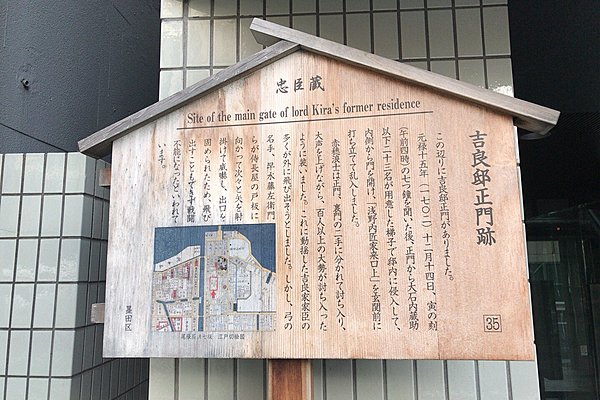 忠臣蔵
Site of the main gate of lord Kira's former residence
吉良邸正門跡
この辺りに吉良邸正門がありました。
元禄十五年（一七〇二）十二月十四日、寅の刻
（午前四時）の七つ鐘を聞いた後、正門から大石内蔵助
以下二十三名が用意した梯子で邸内に侵入して、
内側から門を開け、「浅野内匠家来口上」を玄関前に
打ち立てて乱入しました。
赤穂浪士は正門、裏門の二手に分かれて討ち入り、
大声を上げながら、百人以上の大勢が討ち入った
ように装いました。これに動揺した吉良家家臣の
多くが外に飛び出そうとしました。しかし、弓の
名手、早水藤左衛門
らが侍長屋の戸板に
向かって次々と矢を射
掛けて威嚇し、出口を
固められたため、飛び
出すこともできず戦闘
不能になったといわれて
います。
尾張屋清七版 江戸切絵図
墨田区
35